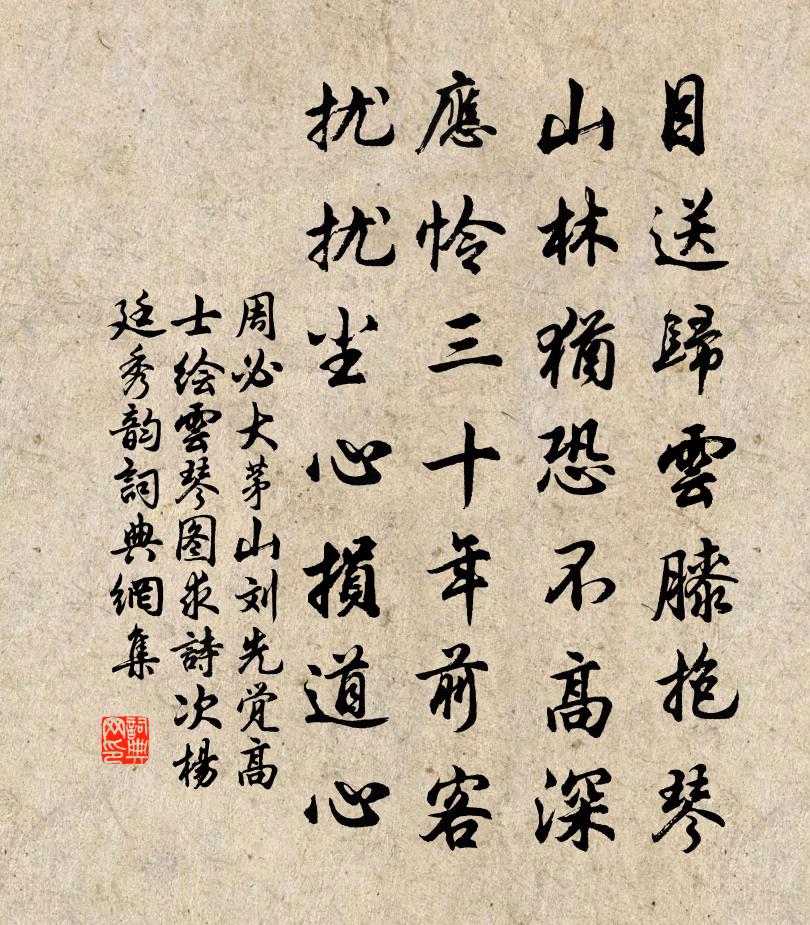 目送歸雲膝抱琴
山林猶恐不高深
應怜三十年前客
扰扰尘心損道心
周必大茅山刘先觉高
士绘雲琴图求詩次楊
廷秀韵詞典網集
詞典网印